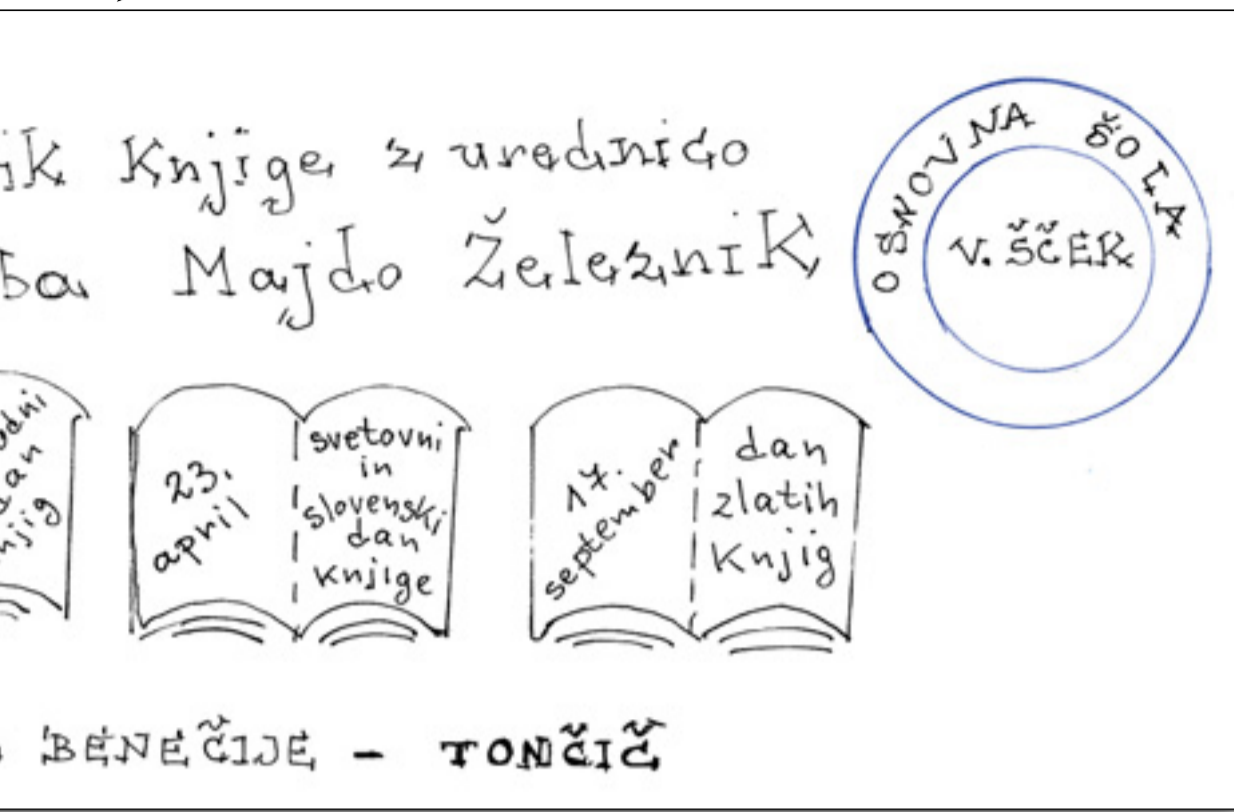 Knjige z urednico
Majdo Železnik
OSNOVNA ŠOLA
V. ŠČEK
23.
april
svetovni
in
slovenski
dan
knjige
17.
september
dan
zlatih
knjig
BENEČIJE - TONČIČ